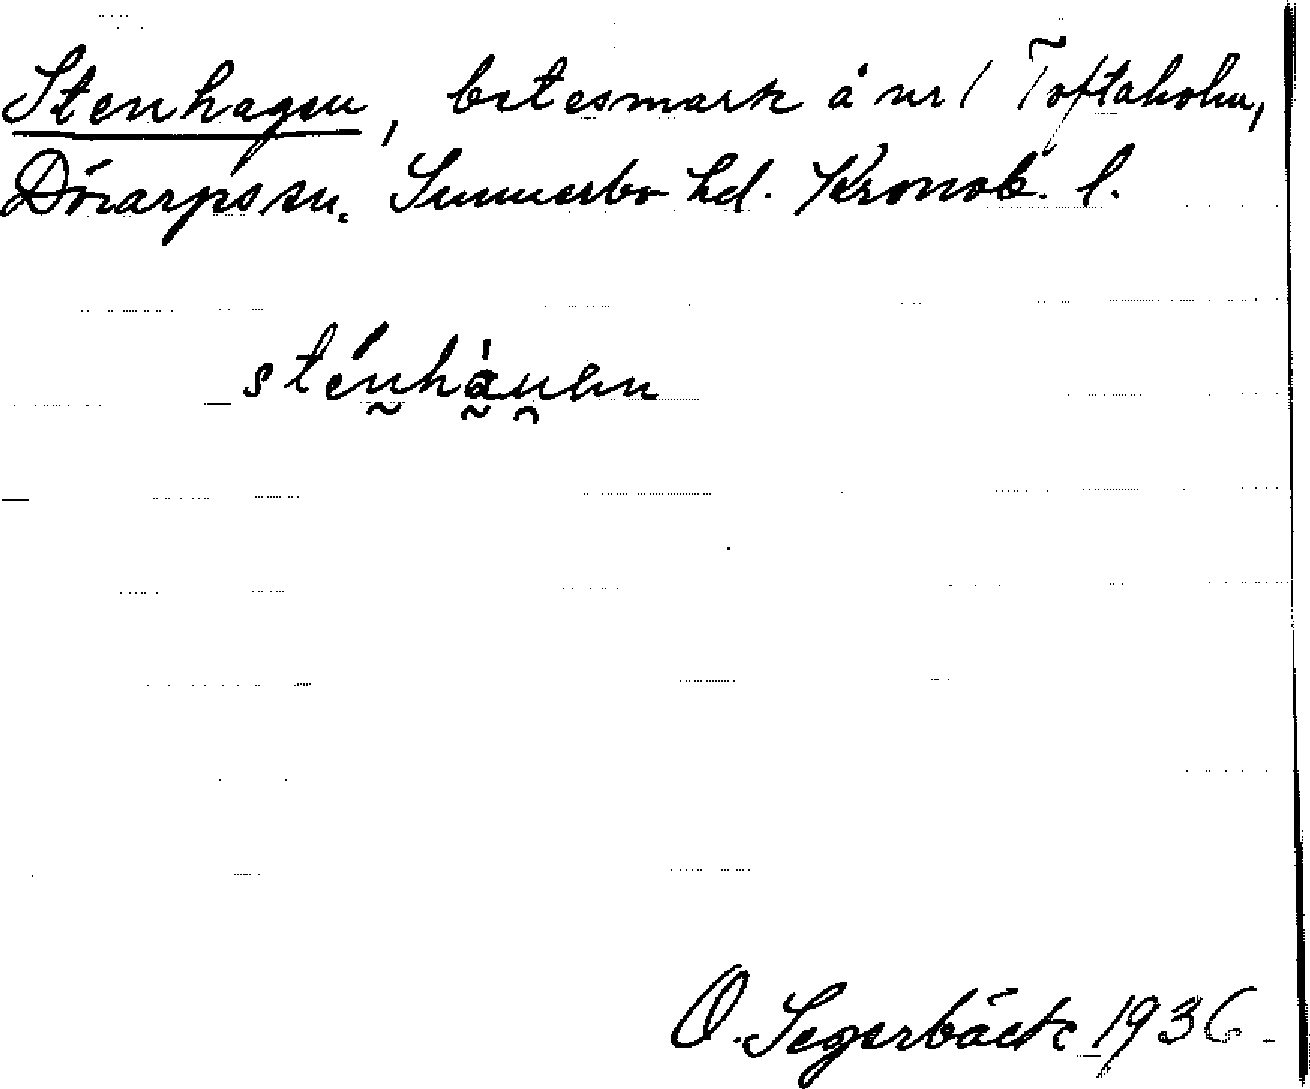 Stenhagen, betesmark å nr 1 Toftaholm,
Dörarps sn. Sunnerbo hd. Kronob. l.
sténhàu̯en
O. Segerbäck 1936